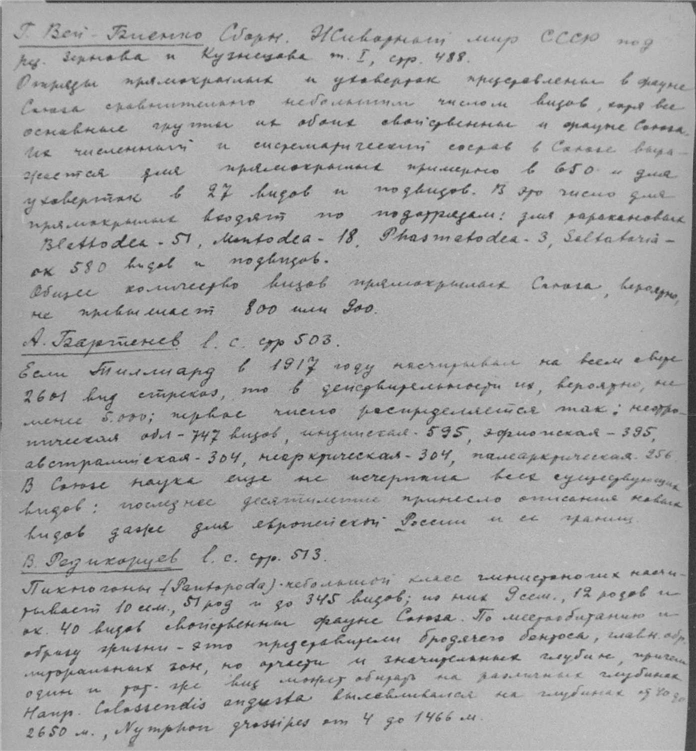 Г. Бей-Биенко Сборн. Животный мир СССР под
ред. Зернова и Кузнецова т. I, стр. 488.
Отряды прямокрылых и уховерток представлены в фауне
Союза сравнительно небольшим числом видов, хотя все
основные группы их обоих свойственны и фауне Союза.
Их численный и систематический состав в Союзе выра-
жается для прямокрылых примерно в 650 и для
уховерток в 27 видов и подвидов. В это число для
прямокрылых входят по подотрядам: для таракановых
Blattodea - 51, Mantodea - 18, Phasmatodea - 3, Saltatoria -
ок 580 видов и подвидов.
Общее количество видов прямокрылых Союза, вероятно,
не превышает 800 или 900.
А. Бартенев l. c. стр 503.
Если Тиллиард в 1917 году насчитывал на всем свете
2601 вид стрекоз, то в действительности их, вероятно, не
менее 5.000; первое число распределяется так: неотро-
пическая обл - 747 видов, индийская - 595, эфиопская - 395,
австралийская - 304, неарктическая - 304, палеарктическая - 256
В Союзе наука еще не исчерпала всех существующих
видов: последнее десятилетие принесло описания новых
видов даже для европейской России и ее границ
В. Редикорцев l. c. стр. 513.
Пикногоны (Pantopoda) - небольшой класс членистоногих насчи-
тывает 10 сем., 51 род и до 345 видов; из них 9 сем., 12 родов и
ок. 40 видов свойственны фауне Союза. По местообитанию и
образу жизни - это представители бродячего бентоса, главн. обр
литоральных зон, но отчасти и значительных глубин, причем
один и тот-же вид может обитать на различных глубинах
Напр. Colossendis angusta вылавливался на глубинах от 40 до
2650 м., Nymphon grossipes от 4 до 1466 м.